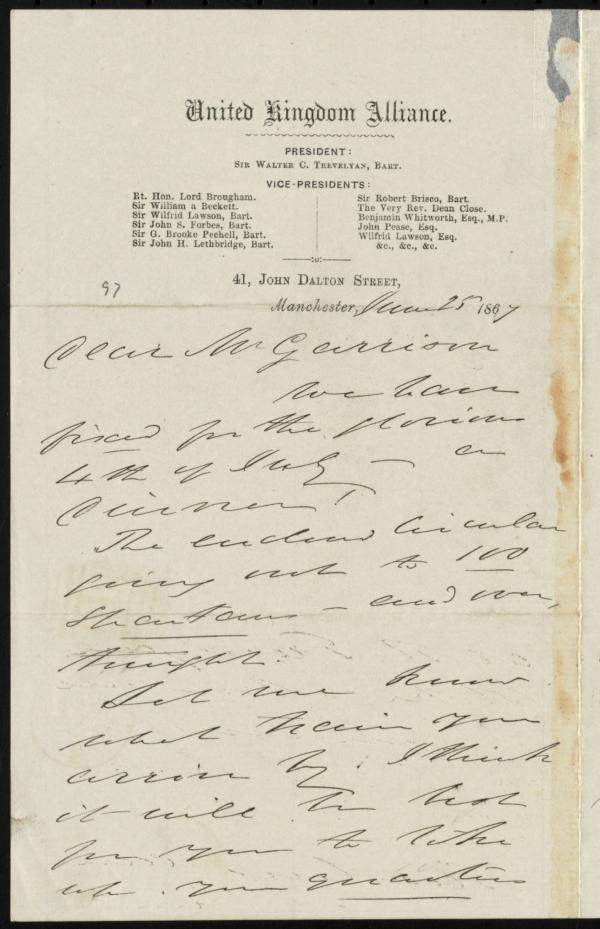 United Kingdom Alliance.
PRESIDENT:
SIR WALTER C. TREVELYAN, BART.
VICE-PRESIDENTS:
Rt. Hon. Lord Brougham.
Sir William a Beckett.
Sir Wilfrid Lawson, Bart.
Sir John S. Forbes, Bart.
Sir G. Brooke Pechell, Bart.
Sir John H. Lethbridge, Bart.
Sir Robert Brisco, Bart.
The Very Rev. Dean Close.
Benjamin Whitworth, Esq., M.P.
John Pease, Esq.
Wilfrid Lawson, Esq.
&c., &c., &c.
41, JOHN DALTON STREET,
97
Manchester, June 25 1867
Dear Mr Garrison
We have
fixed for the glorious
4th of July — a
Dinner!
The enclosed Circular
going out to 100
Spartans — and over,
tonight.
Let me know
what train you
arrive by. I think
it will be best
for you to take
up your quarters